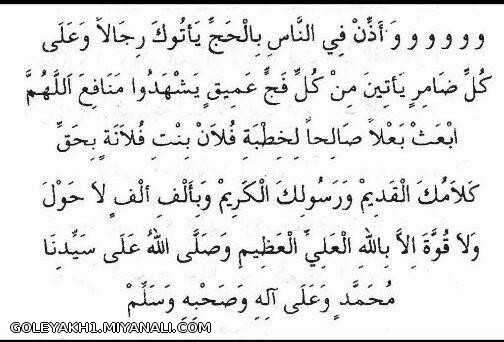 و و و و و و أَذِّنْ فِي النَّاسِ بِالْحَجِّ يَأتُوكَ رِجَالاً وَعَلَى
كُلِّ ضَامِرٍ يَأتِينَ مِنْ كُلِّ فَجٍّ عَمِيقٍ يَشْهَدُوا مَنَافِعَ اَللَّهُمَّ
ابْعَثْ بَعْلاً صَالِحاً لِخِطْبَةِ فُلاَنْ بِنْتِ فُلاَنَةٍ بِحَقِّ
كَلاَمُكَ الْقَدِيمْ وَرَسُولِكَ الْكَرِيمْ وَبِأَلْفِ ألْفِ لاَ حَوْلَ
وَلاَ قُوَّةَ اِلاَّ بِاللهِ الْعَلِيِّ الْعَظِيمِ وَصَلَّى اللهُ عَلَى سَيِّدِنَا
مُحَمَّدٍ وَعَلَى آلِهِ وَصَحْبِهِ وَسَلِّمْ
GOLEYAKH1.MIYANALI.COM